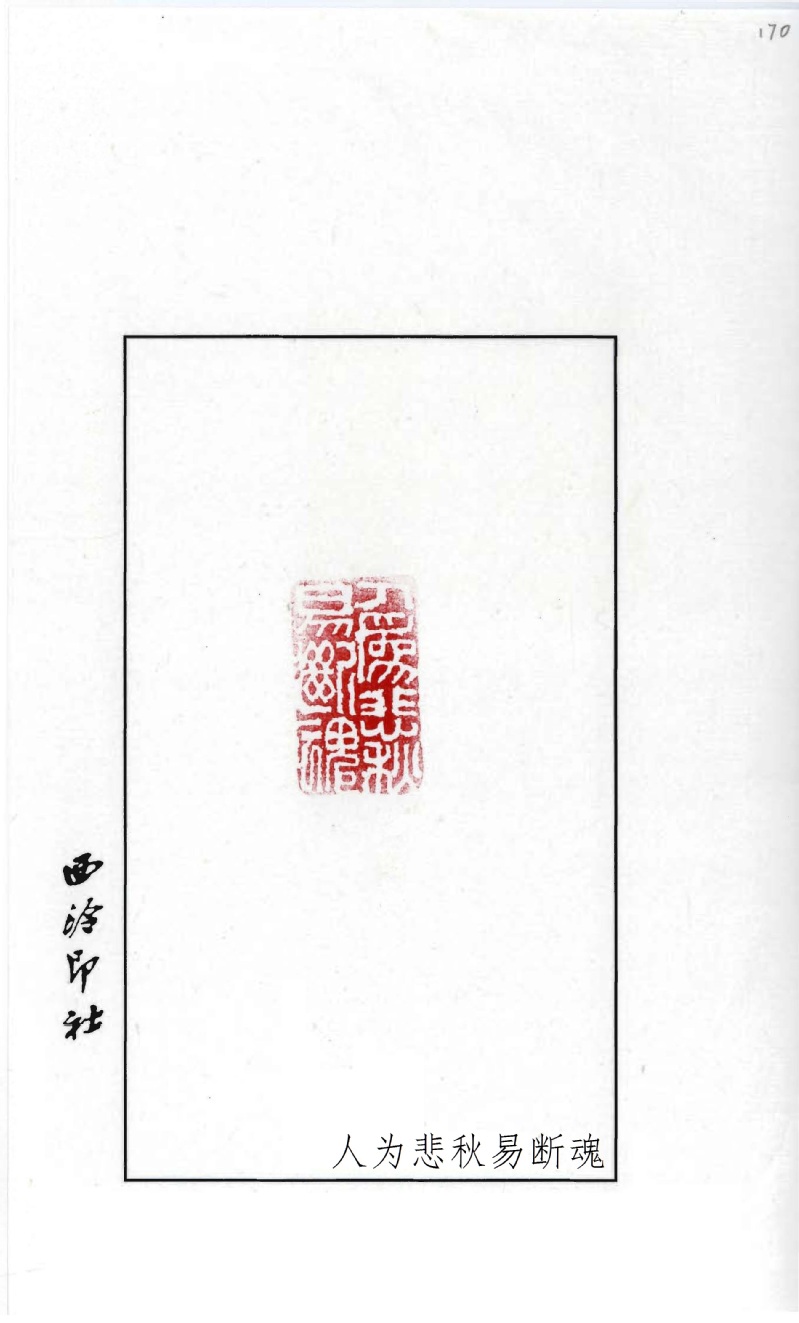 170
人為悲秋
易斷魂
西泠印社
人为悲秋易断魂